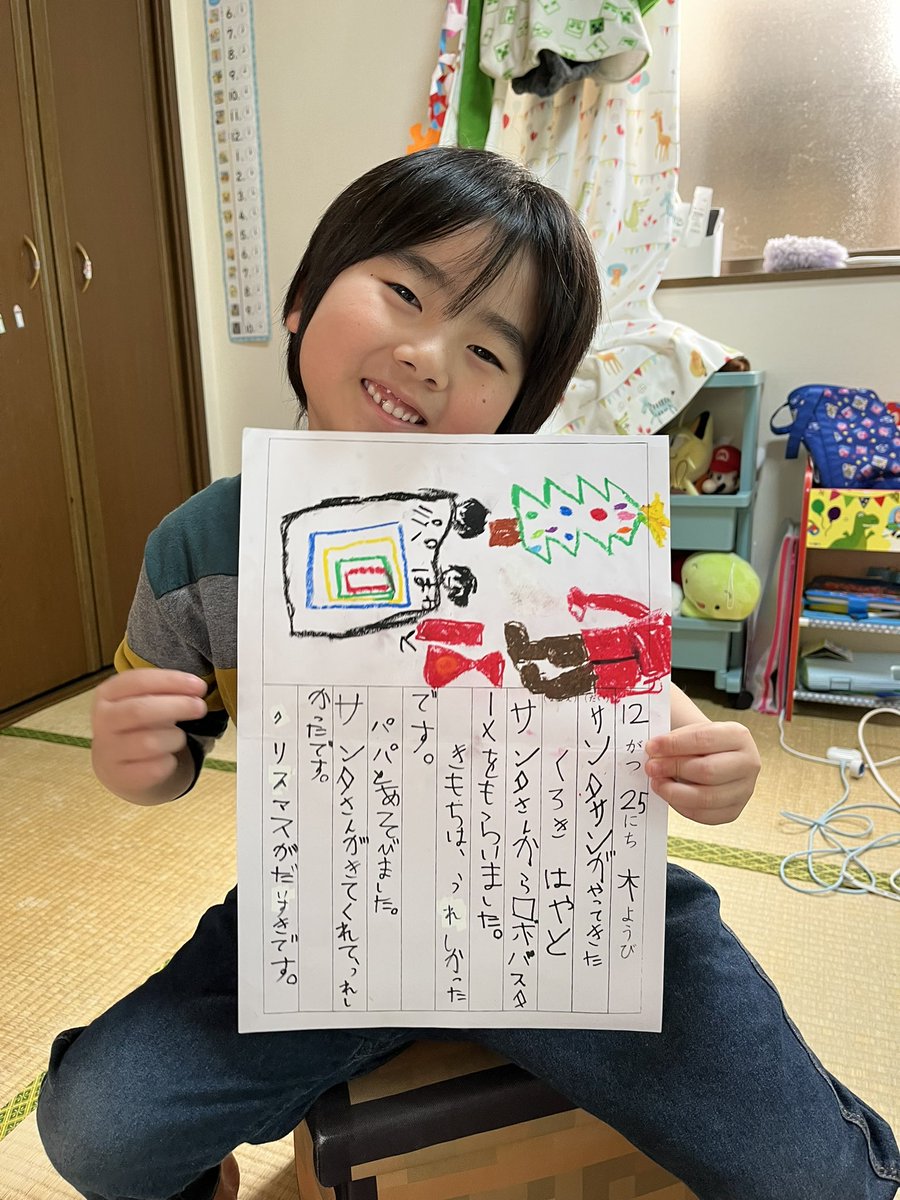 12がつ 25にち 木ようび
サンタサンがやってきた
くろき はやと
サンタさんからロボバスタ
ーXをもらいました。
きもちは、うれしかった
です。
パパとあそびました。
サンタさんがきてくれて、うれし
かったです。
クリスマスがだいすきです。